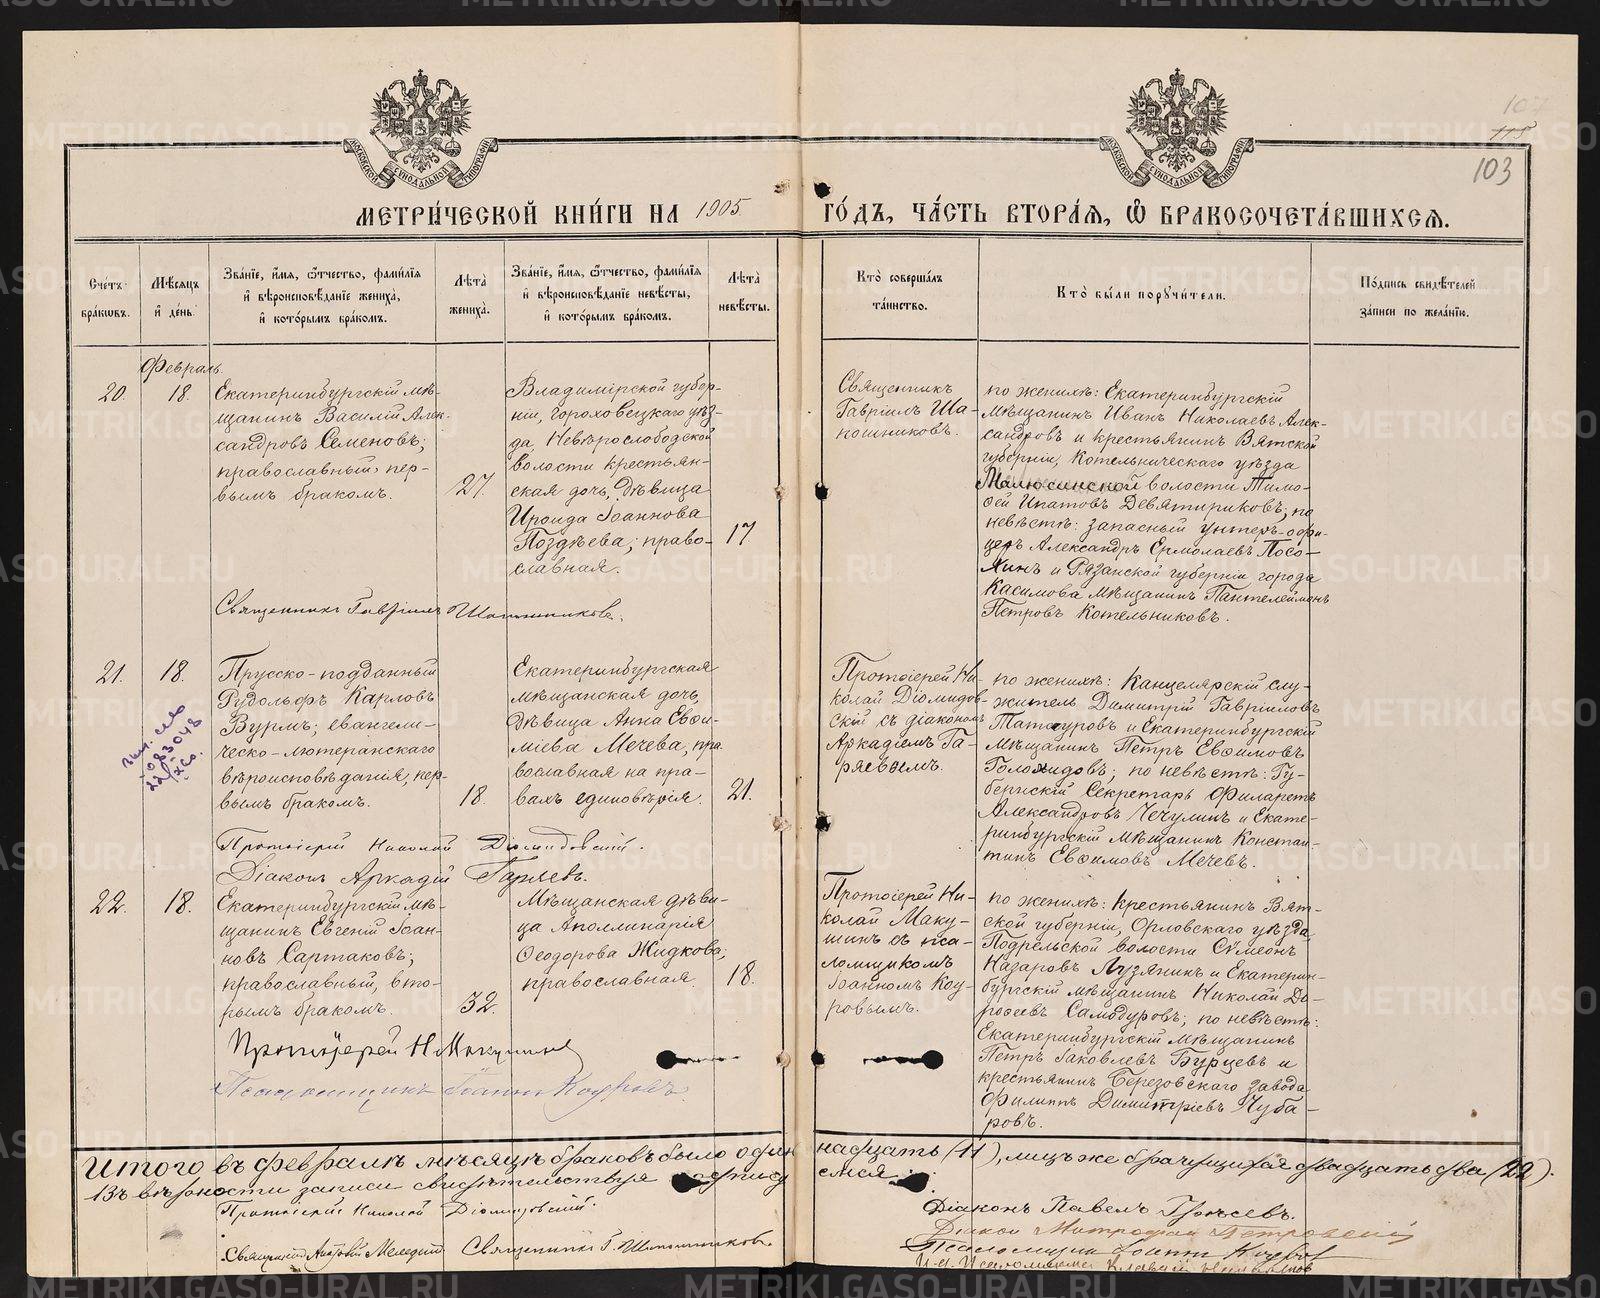 107
115
103
МЕТРИЧЕСКОЙ КНИГИ НА 1905 ГОДЪ, ЧАСТЬ ВТОРАЯ, Ѿ БРАКОСОЧЕТАВШИХСЯ.
Счетъ браковъ.
Мѣсяцъ и день.
Званіе, имя, отчество, фамилія
и вѣроисповѣданіе жениха,
и которымъ бракомъ.
Лѣта жениха.
Званіе, имя, отчество, фамилія
и вѣроисповѣданіе невѣсты,
и которымъ бракомъ.
Лѣта невѣсты.
Кто совершалъ таинство.
Кто были поручители.
Подпись свидѣтелей
записи по желанію.
Февраль.
20.
18.
Екатеринбургскій мѣ-
щанинъ Василій Алек-
сандровъ Семеновъ;
православный, пер-
вымъ бракомъ.
27.
Владимірской губер-
ніи, Гороховецкаго уѣз-
да, Невѣрослободской
волости крестьян-
ская дочь, дѣвица
Ироида Іоаннова
Поздѣева; право-
славная.
17
Священникъ
Гавріилъ Ша-
кошниковъ.
по женихѣ: Екатеринбургскій
мѣщанинъ Иванъ Николаевъ Алек-
сандровъ и крестьянинъ Вятской
губерніи, Котельническаго уѣзда
волости Тимо-
ѳей Ипатовъ Девятириковъ; по
невѣстѣ: запасный унтеръ-офи-
церъ Александръ Ермолаевъ Посо-
хинъ и Рязанской губерніи города
Касимова мѣщанинъ Пантелеймонъ
Петровъ Котельниковъ.
Священникъ Гавріилъ
21.
18.
Прусско-подданный
Рудольфъ Карловъ
Вурмъ; евангели-
ческо-лютеранскаго
вѣроисповѣданія, пер-
вымъ бракомъ.
18.
Екатеринбургская
мѣщанская дочь,
дѣвица Анна Евѳи-
міева Мечева, пра-
вославная на пра-
вахъ единовѣрія.
21.
Протоіерей Ни-
колай Діомидов-
скій съ діакономъ
Аркадіемъ Га-
ряевымъ.
по женихѣ: Канцелярскій слу-
житель Димитрій Гавріиловъ
Татауровъ и Екатеринбургскій
мѣщанинъ Петръ Евѳимовъ
Голомидовъ; по невѣстѣ: Гу-
бернскій Секретарь Филаретъ
Александровъ Чечулинъ и Екате-
ринбургскій мѣщанинъ Констан-
тинъ Евѳимовъ Мечевъ.
Протоіерей Николай Діомидовскій.
Діаконъ Аркадій Гаряевъ.
22.
18.
Екатеринбургскій мѣ-
щанинъ Евгеній Іоан-
новъ Сартаковъ;
православный, вто-
рымъ бракомъ.
32.
Мѣщанская дѣви-
ца Аполлинарія
Ѳеодорова Жидкова;
православная.
18.
Протоіерей Ни-
колай Маку-
шинъ съ пса-
ломщикомъ
Іоанномъ Коу-
ровымъ.
по женихѣ: крестьянинъ Вят-
ской губерніи, Орловскаго уѣзда,
Подрельской волости Сѵмеонъ
Назаровъ Лузянинъ и Екатерин-
бургскій мѣщанинъ Николай До-
роѳеевъ Самодуровъ; по невѣстѣ:
Екатеринбургскій мѣщанинъ
Петръ Іаковлевъ Бурцевъ и
крестьянинъ Березовскаго завода
Филиппъ Димитріевъ Чуба-
ровъ.
Протоіерей Н Макушинъ
Псаломщикъ Іоаннъ Коуровъ.
Итого въ февралѣ мѣсяцѣ браковъ было одиннадцать (11), лицъ же брачущихся двадцать два (22).
Въ вѣрности записи свидѣтельствуя подписуемся:
Протоіерей Николай Діомидовскій.
Священникъ
Священникъ Г.
Діаконъ Павелъ
Діаконъ Митрофанъ Петровскій
Псаломщикъ Іоаннъ Коуровъ
METRIKI.GASO-URAL.RU